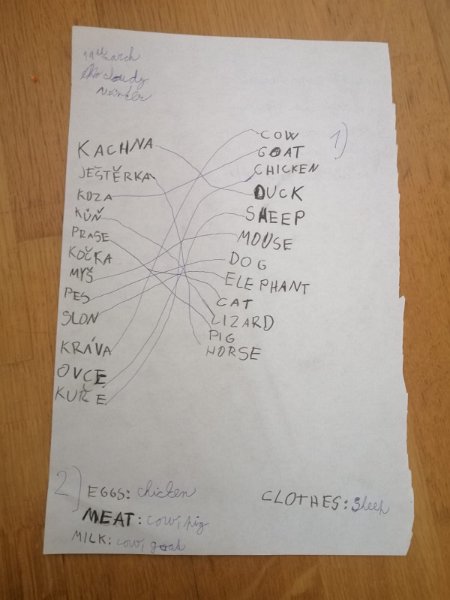 11th March
It's cloudy
KACHNA
JEŠTĚRKA
KOZA
KŮŇ
PRASE
KOČKA
MYŠ
PES
SLON
KRÁVA
OVCE
KUŘE
1)
COW
GOAT
CHICKEN
DUCK
SHEEP
MOUSE
DOG
ELEPHANT
CAT
LIZARD
PIG
HORSE
2) EGGS: chicken
MEAT: cow, pig
MILK: cow, goat
CLOTHES: Sheep